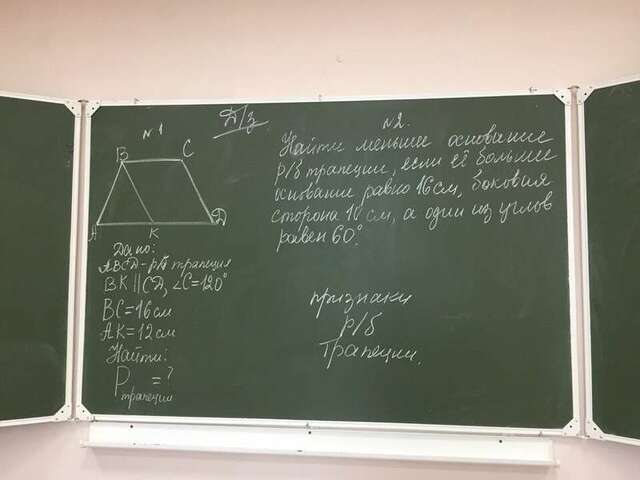 Д/з
№1
В С
А К Д
Дано:
АВСD - р/б трапеция
ВК || СD, ∠С=120°
ВС=16см
АК=12см
Найти:
Р трапеции = ?
№2.
Найти меньшее основание
р/б трапеции, если её большее
основание равно 16см, боковая
сторона 10 см, а один из углов
равен 60°.
признаки
р/б
трапеции.